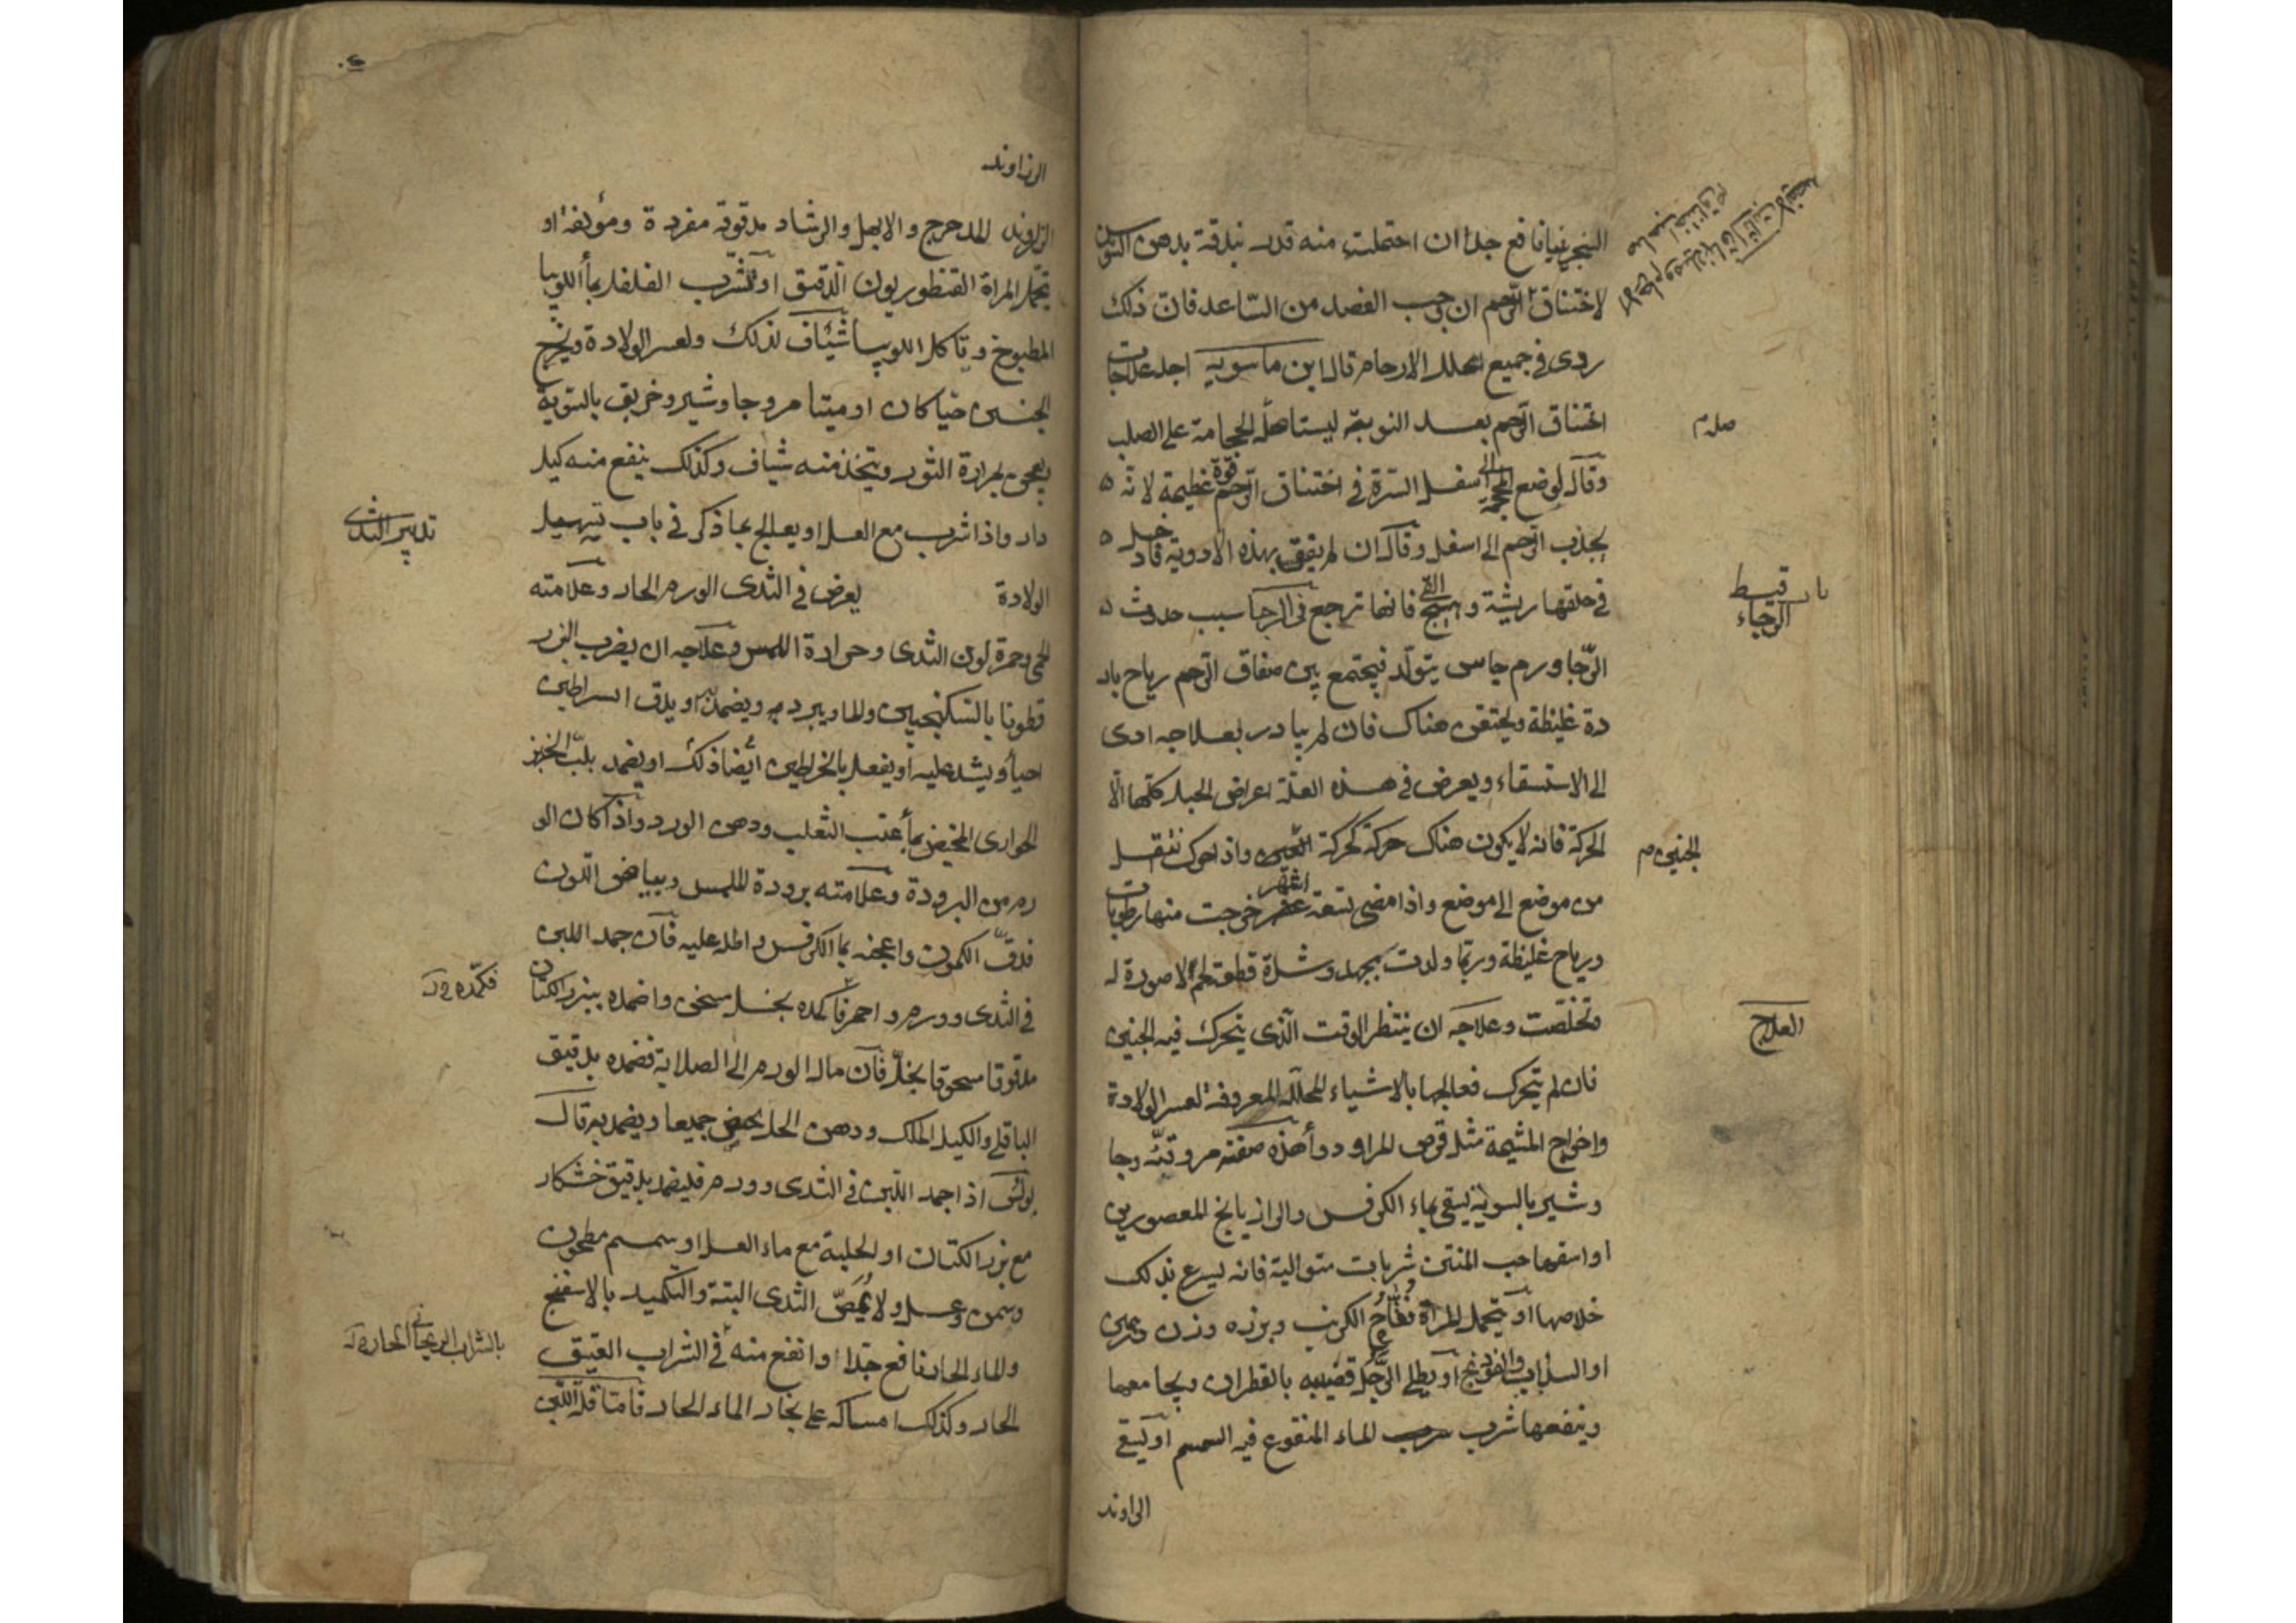 نافع جدا ان احتملت منه قدر بندقة بدهن السوسن
لاختناق الرحم ان يجب الفصد من الساعد فان ذلك
ردى في جميع علل الارحام قال ابن ماسويه اجل علاجات
اختناق الرحم بعد النوبة الحجامة على الصلب
صلدم
وقال لوضع المحجمة الى اسفل السرة في اختناق الرحم قوة عظيمة لانه
يجذب الرحم الى اسفل وقال ان لم يفق بهذه الادوية فادخل
في حلقها ريشة وهيج القى فانها ترجع في الرجا سبب حدوث
باب قسط
الرجاء
الرجا ورم جاس يتولد فيجتمع بين صفاق الرحم رياح بار
دة غليظة ويحتقن هناك فان لم يبادر بعلاجه ادى
الى الاستسقاء ويعرض في هذه العلة اعراض الحبل كلها الا
الحركة فانه لا يكون هناك حركة كحركة واذا حرك تنتقل
الجنين م
من موضع الى موضع واذا مضى تسعة اشهر خرجت منها رطوبات
ورياح غليظة وربما ولدت بجهد وشدة قطعة لحم لا صورة له
وتخلصت وعلاجه ان ينتظر الوقت الذى يتحرك فيه الجنين
العلاج
فان لم يتحرك فعالجها بالاشياء المحللة المعروفة لعسر الولادة
واخراج المشيمة مثل قرص المر او دوأ هذه صفته مر وقنه وجا
وشير بالسوية يسقى بماء الكرفس والرازيانج المعصورين
او اسقها حب المنتن شربات متوالية فانه يسرع بذلك
خلاصها او يتحمل المراة فقاح الكرنب وبزره وزن
او السذاب والفودنج او يطلى الرجل قضيبه بالقطران ويجامعها
وينفعها شرب الماء المنقوع فيه السمسم او يسقى
الراوند
الزراوند
الزراوند المدحرج والابهل والرشاد مدقوقة مفردة ومؤلفة او
تحمل المراة القنطوريون الدقيق او تشرب الفلفل بمأ اللوبيا
المطبوخ وتاكل اللوبيا شياف لذلك ولعسر الولادة ويخرج
الجنين حيا كان او ميتا مر وجاوشير وخربق بالسوية
يعجن بمرارة الثور ويتخذ منه شياف وكذلك ينفع منه كيل
دار واذا شرب مع العسل او يعالج بما ذكر في باب تسهيل
تدبير الثدى
الولادة يعرض في الثدى الورم الحار وعلامته
الحمى وحمرة لون الثدى وحرارة اللمس وعلاجه ان يضرب البزر
قطونا بالسكنجبين والما ويبرد ويضمد او يدق السراطين
احيأ ويشد عليه او يفعل بالخراطين أيضا ذلك او يضمد بلب الخبز
الحوارى بمأ عنب الثعلب ودهن الورد واذا كان الو
رم من البرودة وعلامته برودة الملمس وبياض اللون
فدق الكمون واعجنه بما الكرفس واطله عليه فان جمد اللبن
في الثدى وورم واحمر فاكمده بخل سخن واضمده ببزر الكتان
فكمده
مدقوقا مسحوقا بخل فان مال الورم الى الصلابة فضمده بدقيق
الباقلى واكليل الملك ودهن الحل جميعا ويضمد به قال
بولس اذا جمد اللبن في الثدى وورم فليضمد بدقيق خشكار
مع بزر الكتان او الحلبة مع ماء العسل او سمسم مطحون
وسمن وعسل ولا يمص الثدى البتة والتكميد بالاسفنج
والماء الحار نافع جدا او انفع منه في الشراب العتيق
بالشراب الريحانى الحار
الحار وكذلك امساكه على بخار الماء الحار فاما قلة اللبن